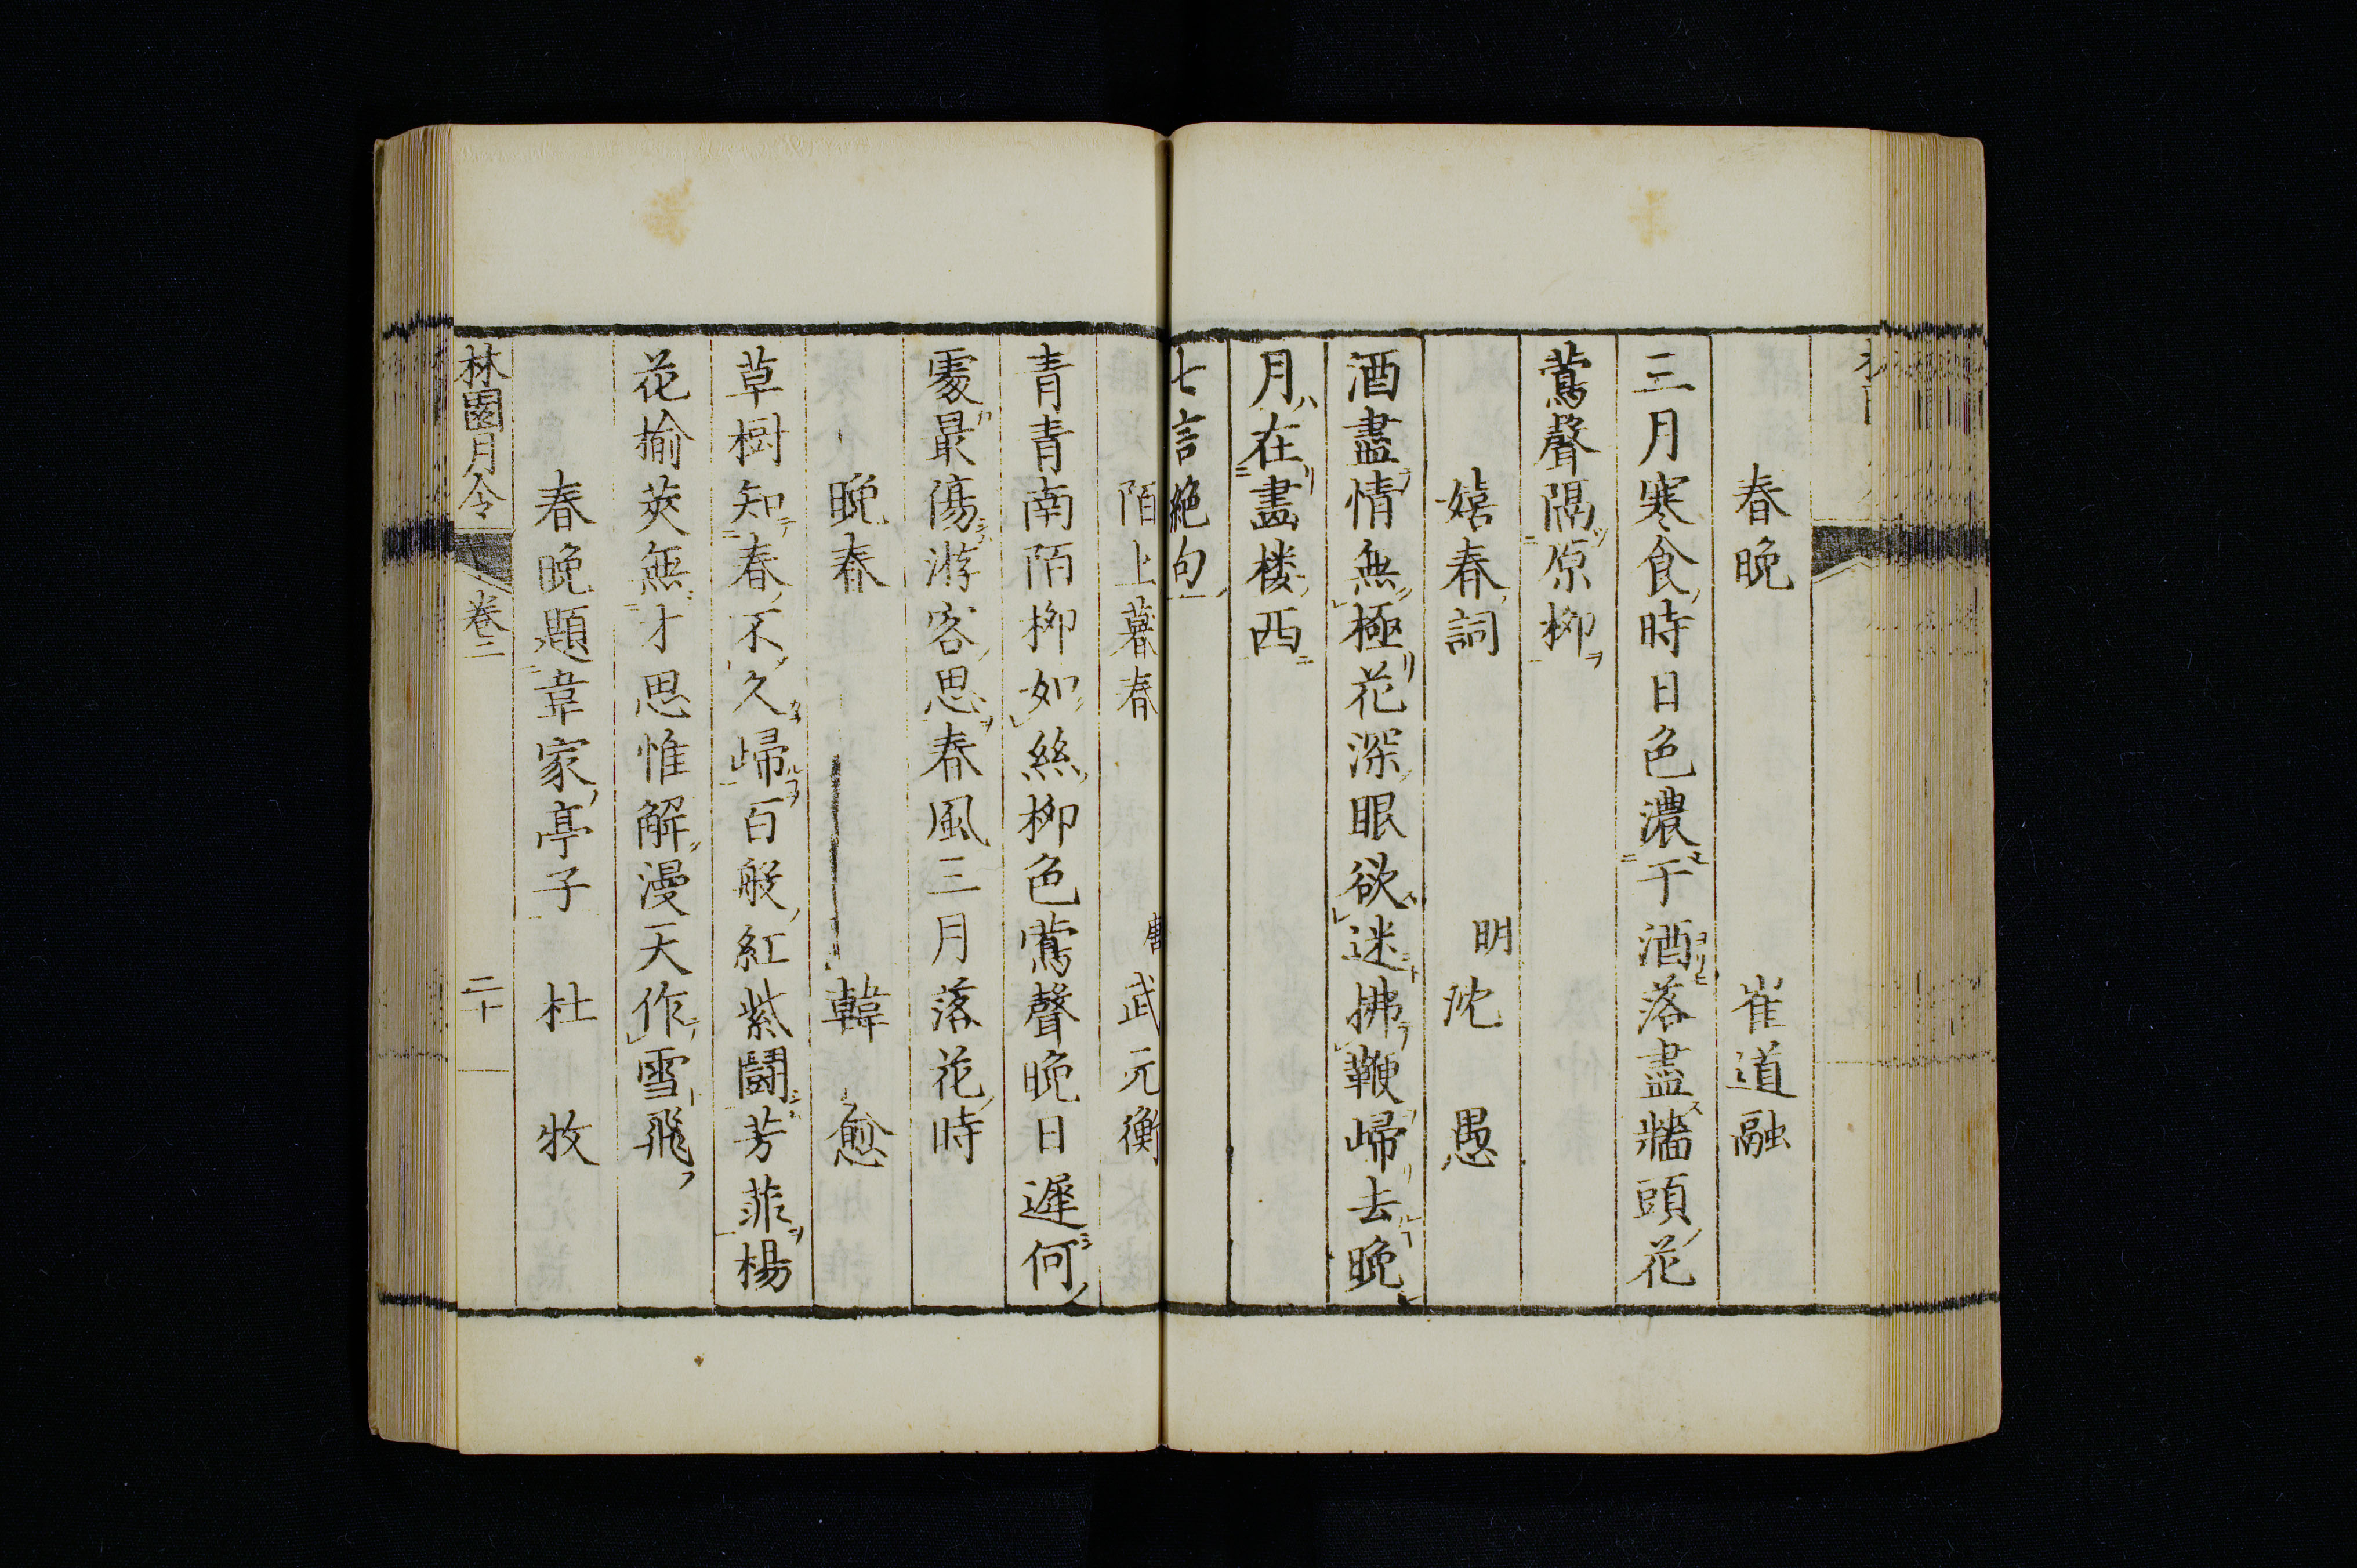 春晩 崔道融
三月寒食時日色濃于酒落盡牆頭花
鶯聲隔原柳
嬉春詞 明 沈愚
酒盡情無極花深眼欲迷拂鞭歸去晩
月在畫楼西
七言絶句
陌上暮春 唐 武元衡
青青南陌柳如絲柳色鶯聲晩日遲何
處最傷游客思春風三月落花時
晩春 韓愈
草樹知春不久歸百般紅紫鬪芳菲楊
花揄莢無才思惟解漫天作雪飛
春晩題韋家亭子 杜牧
林園月令 卷二 二十